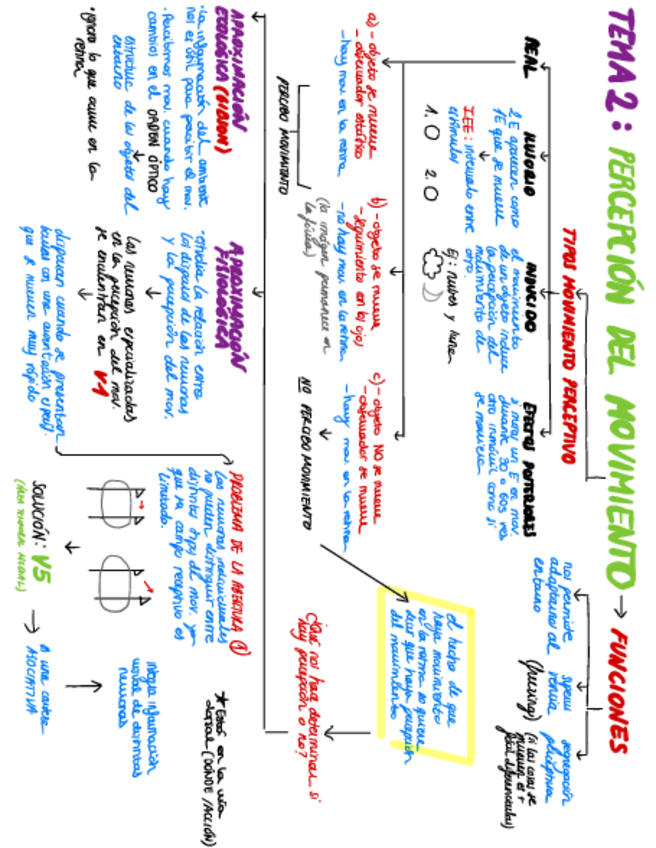 TEMA 2: PERCEPCIÓN DEL MOVIMIENTO → FUNCIONES
nos permite
adaptarnos al
entorno
(Priming)
segregación
perceptiva
(si las cosas se
mueven es +
fácil diferenciarlas)
TIPOS MOVIMIENTO PERCEPTIVO
REAL
ILUSORIO
2 E aparecen como
1E que se mueve
IEE: intervalo entre
estímulos
1. O 2. O
INDUCIDO
el movimiento
de un objeto induce
la percepción del
movimiento de
otro.
Ej: nubes y luna
EFECTOS POSTERIORES
x mirar un E en mov.
durante 30 o 60s ves
otro inmóvil como si
se moviera
a) - objeto se mueve
- observador estático
- hay mov en la retina
PERCIBO MOVIMIENTO
b) - objeto se mueve
- seguimiento en los ojos
- no hay mov en la retina
(la imagen permanece en
la fóvea)
c) - objeto NO se mueve
- observador se mueve
- hay mov en la retina
NO PERCIBO MOVIMIENTO
el hecho de que
haya movimiento
en la retina no quiere
decir que haya percepción
del movimiento
¿Qué nos hace determinar si
hay percepción o no?
APROXIMACIÓN
ECOLÓGICA (GIBSON)
· La información del ambiente
nos es útil para percibir el mov.
· Percibimos mov cuando hay
cambios en el ORDEN ÓPTICO
estructura de los objetos del
entorno
· ignora lo que ocurre en la
retina
APROXIMACIÓN
FISIOLÓGICA
· estudia la relación entre
los disparos de las neuronas
y la percepción del mov.
Las neuronas especializadas
en la percepción del mov.
se encuentran en V1
disparan cuando se presentan
luces en una orientación específ.
que se mueven muy rápido
PROBLEMA DE LA ABERTURA (1)
Las neuronas individuales
no pueden distinguir entre
distintos tipos del mov. ya
que su campo receptivo es
limitado.
SOLUCIÓN: V5
(ÁREA TEMPORAL MEDIAL)
es una corteza
ASOCIATIVA
integra información
visual de distintas
neuronas
* Está en la vía
dorsal (DÓNDE / ACCIÓN)